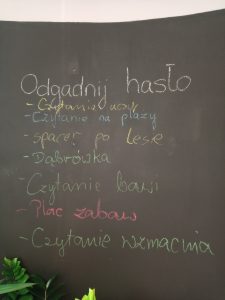 Odgadnij hasło
- Czytanie uczy
- Czytanie na plaży
- spacer po lesie
- Dąbrówska
- Czytanie bawi
- Plac zabaw
- Czytanie wzmacnia